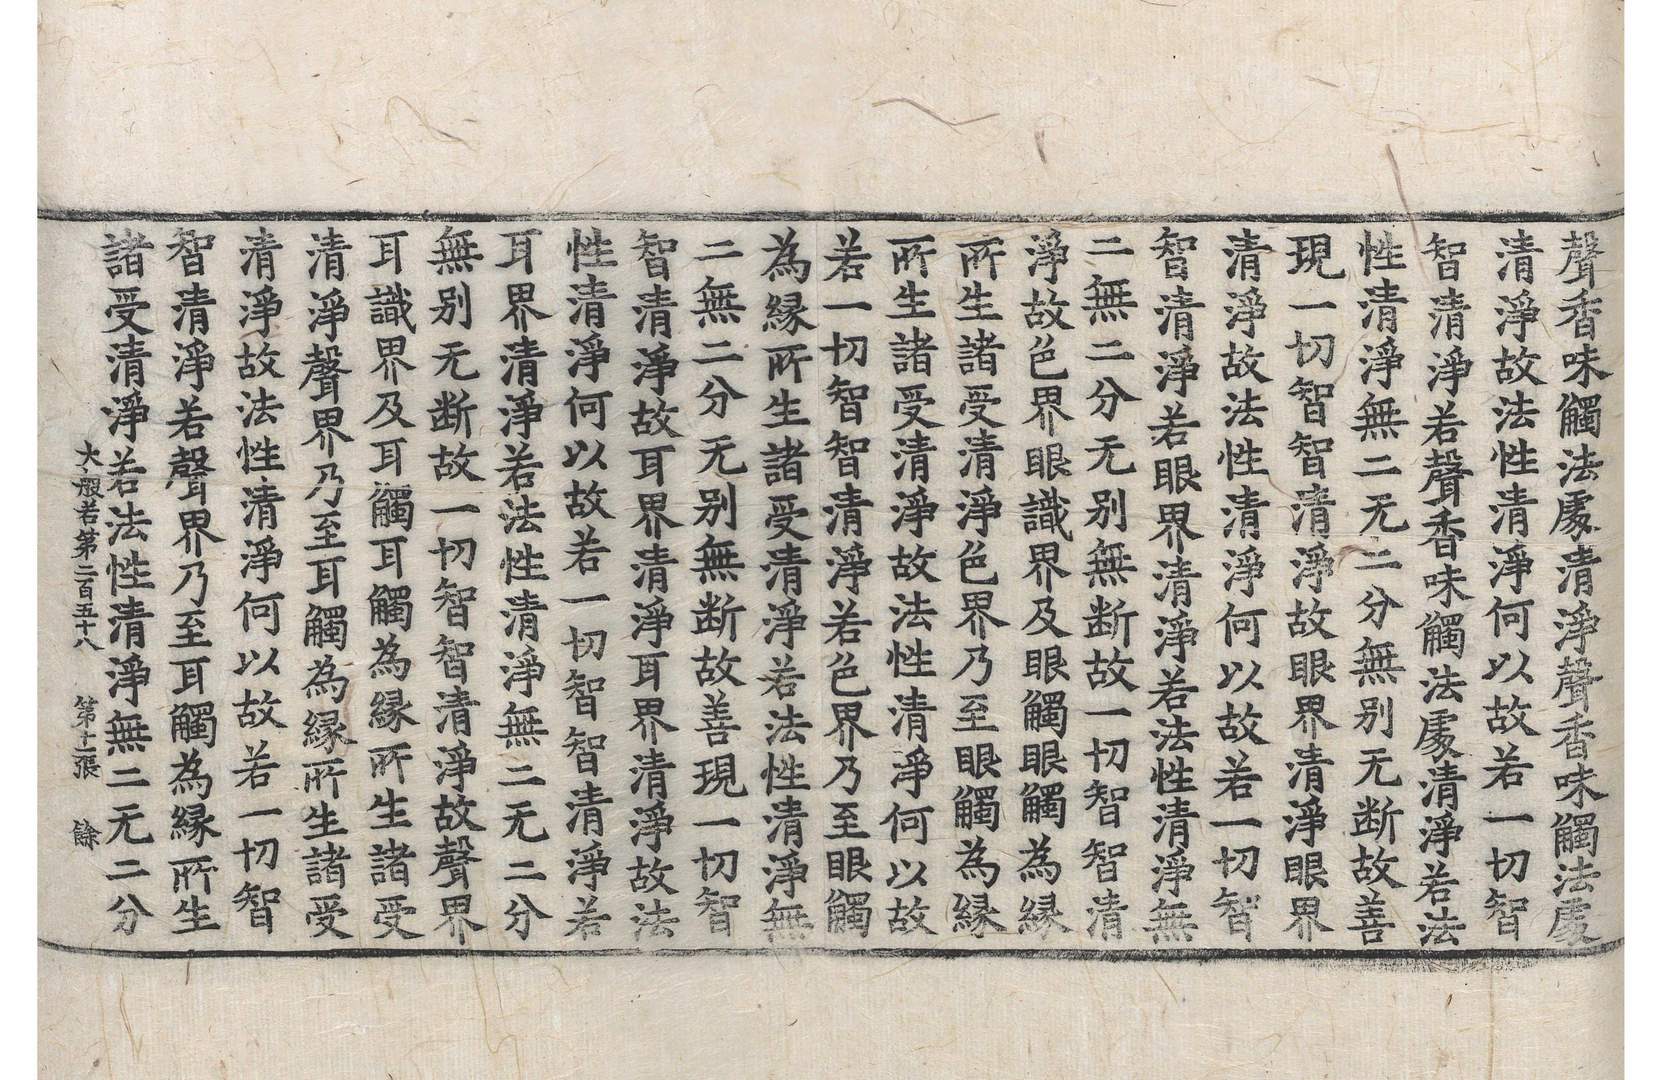 聲香味觸法處清淨聲香味觸法處
清淨故法性清淨何以故若一切智
智清淨若聲香味觸法處清淨若法
性清淨無二无二分無別无断故善
現一切智智清淨故眼界清淨眼界
清淨故法性清淨何以故若一切智
智清淨若眼界清淨若法性清淨無
二無二分无別無断故一切智智清
淨故色界眼識界及眼觸眼觸為緣
所生諸受清淨色界乃至眼觸為緣
所生諸受清淨故法性清淨何以故
若一切智智清淨若色界乃至眼觸
為緣所生諸受清淨若法性清淨無
二無二分无別無断故善現一切智
智清淨故耳界清淨耳界清淨故法
性清淨何以故若一切智智清淨若
耳界清淨若法性清淨無二无二分
無別无断故一切智智清淨故聲界
耳識界及耳觸耳觸為緣所生諸受
清淨聲界乃至耳觸為緣所生諸受
清淨故法性清淨何以故若一切智
智清淨若聲界乃至耳觸為緣所生
諸受清淨若法性清淨無二无二分
大般若第二百五十八 第十二張 餘